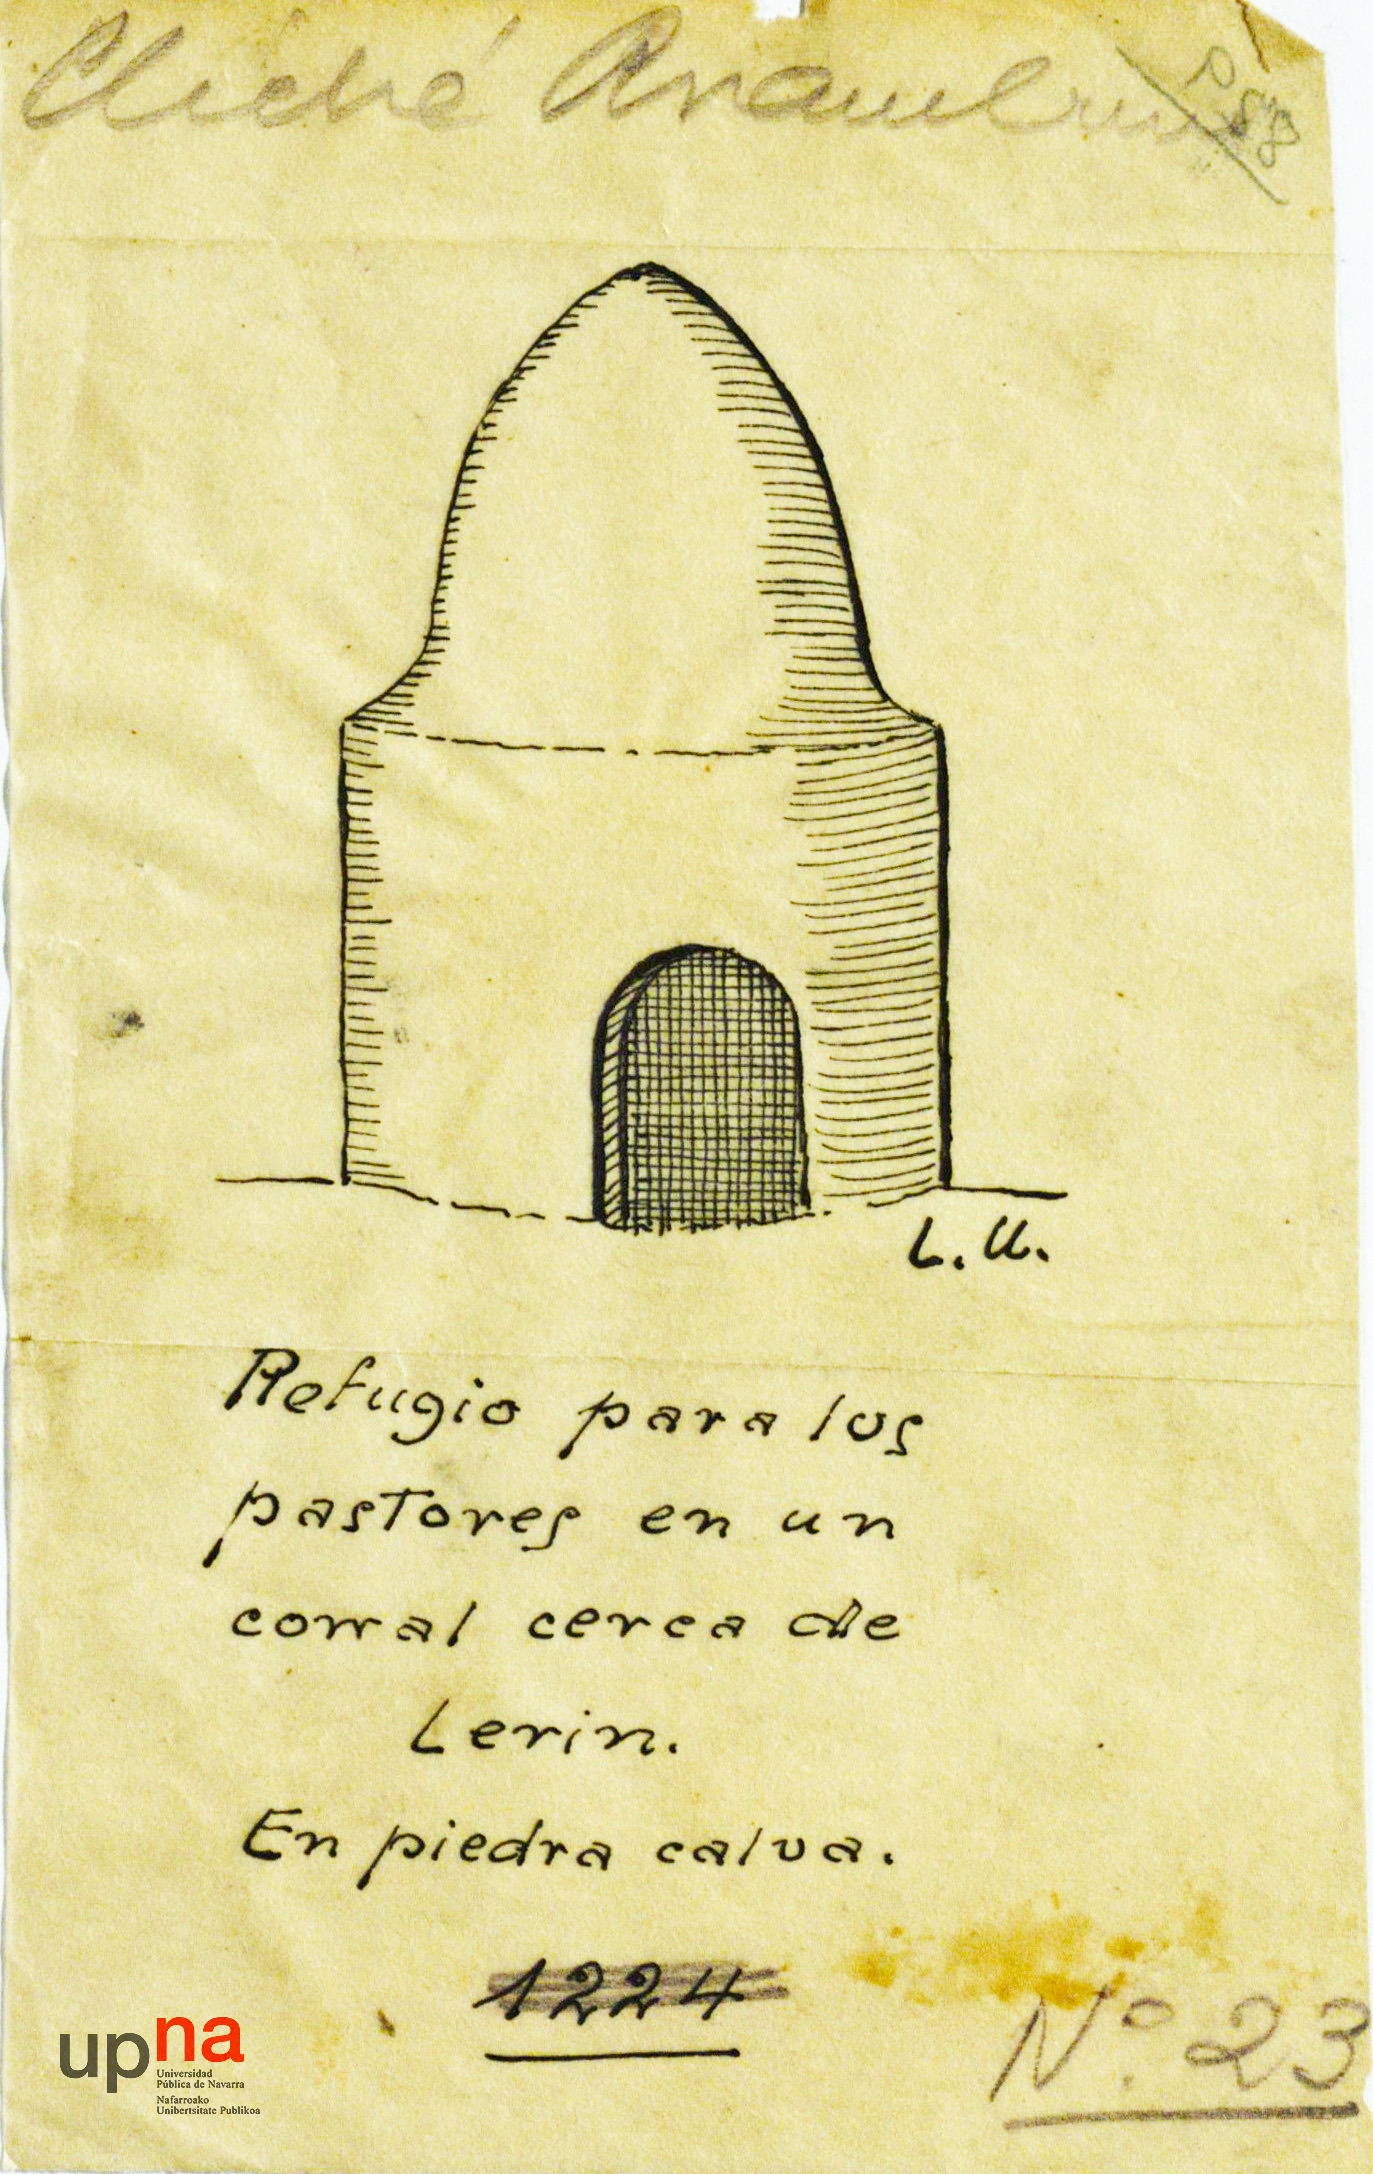 Cliché
P 88
L. U.
Refugio para los
pastores en un
corral cerca de
Lerin.
En piedra calva.
1224
Nº. 23
upna
Universidad
Pública de Navarra
Nafarroako
Unibertsitate Publikoa